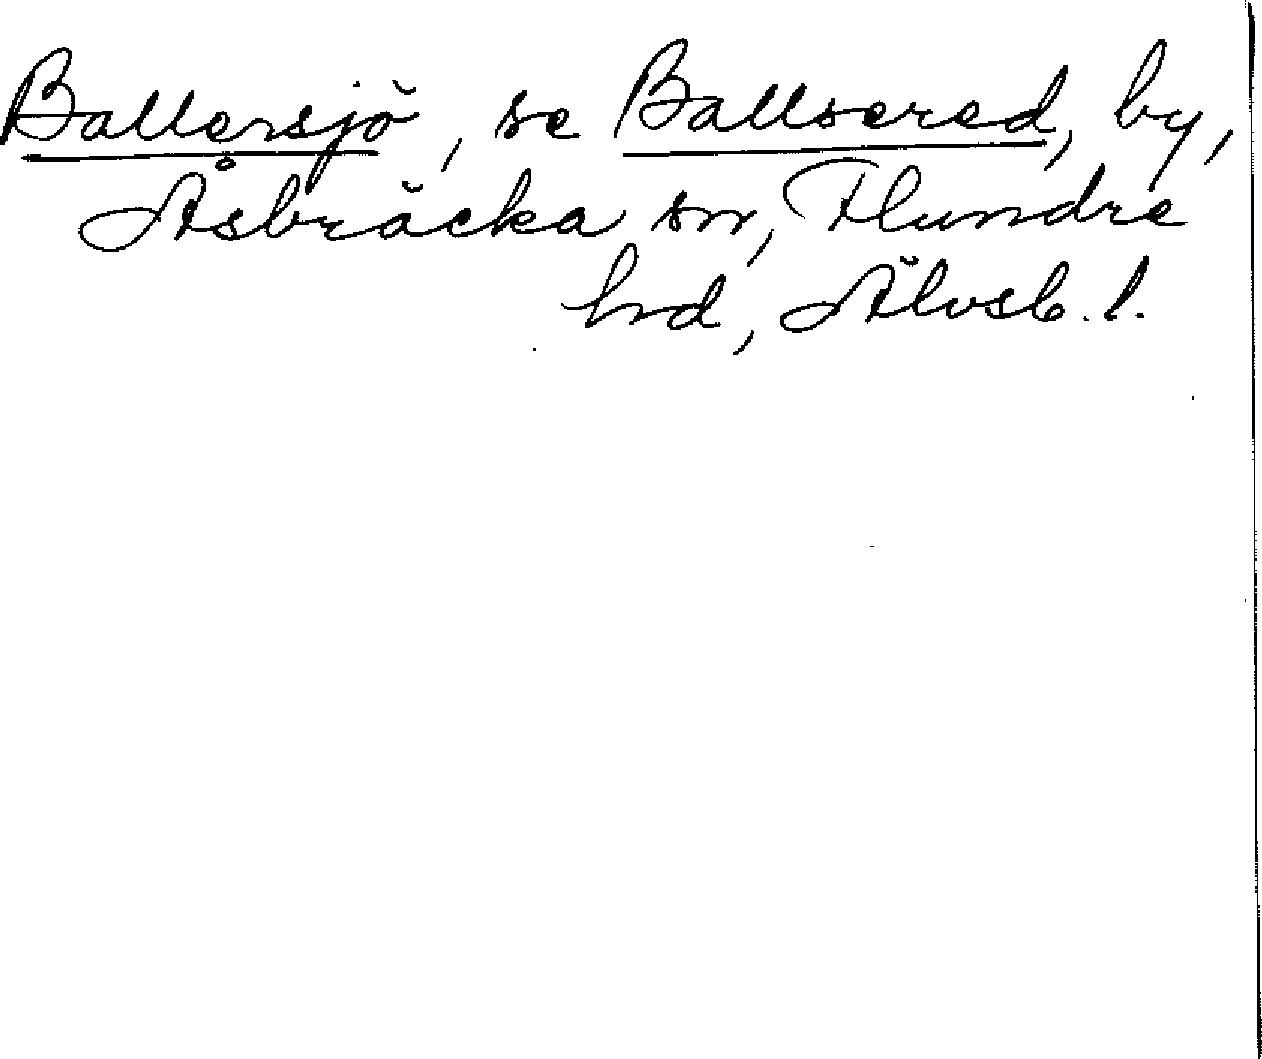 Ballersjö, se Ballsered, by,
Åsbräcka sn, Flundre
hd, Älvsb. l.